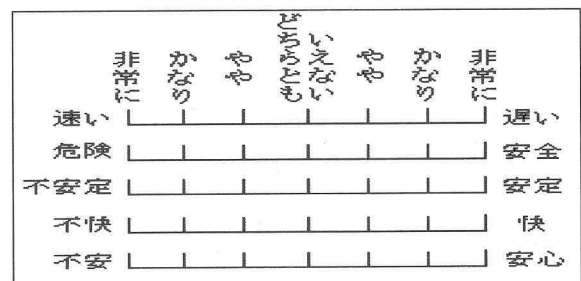 非常に かなり やや どちらともいえない やや かなり 非常に
速い 遅い
危険 安全
不安定 安定
不快 快
不安 安心